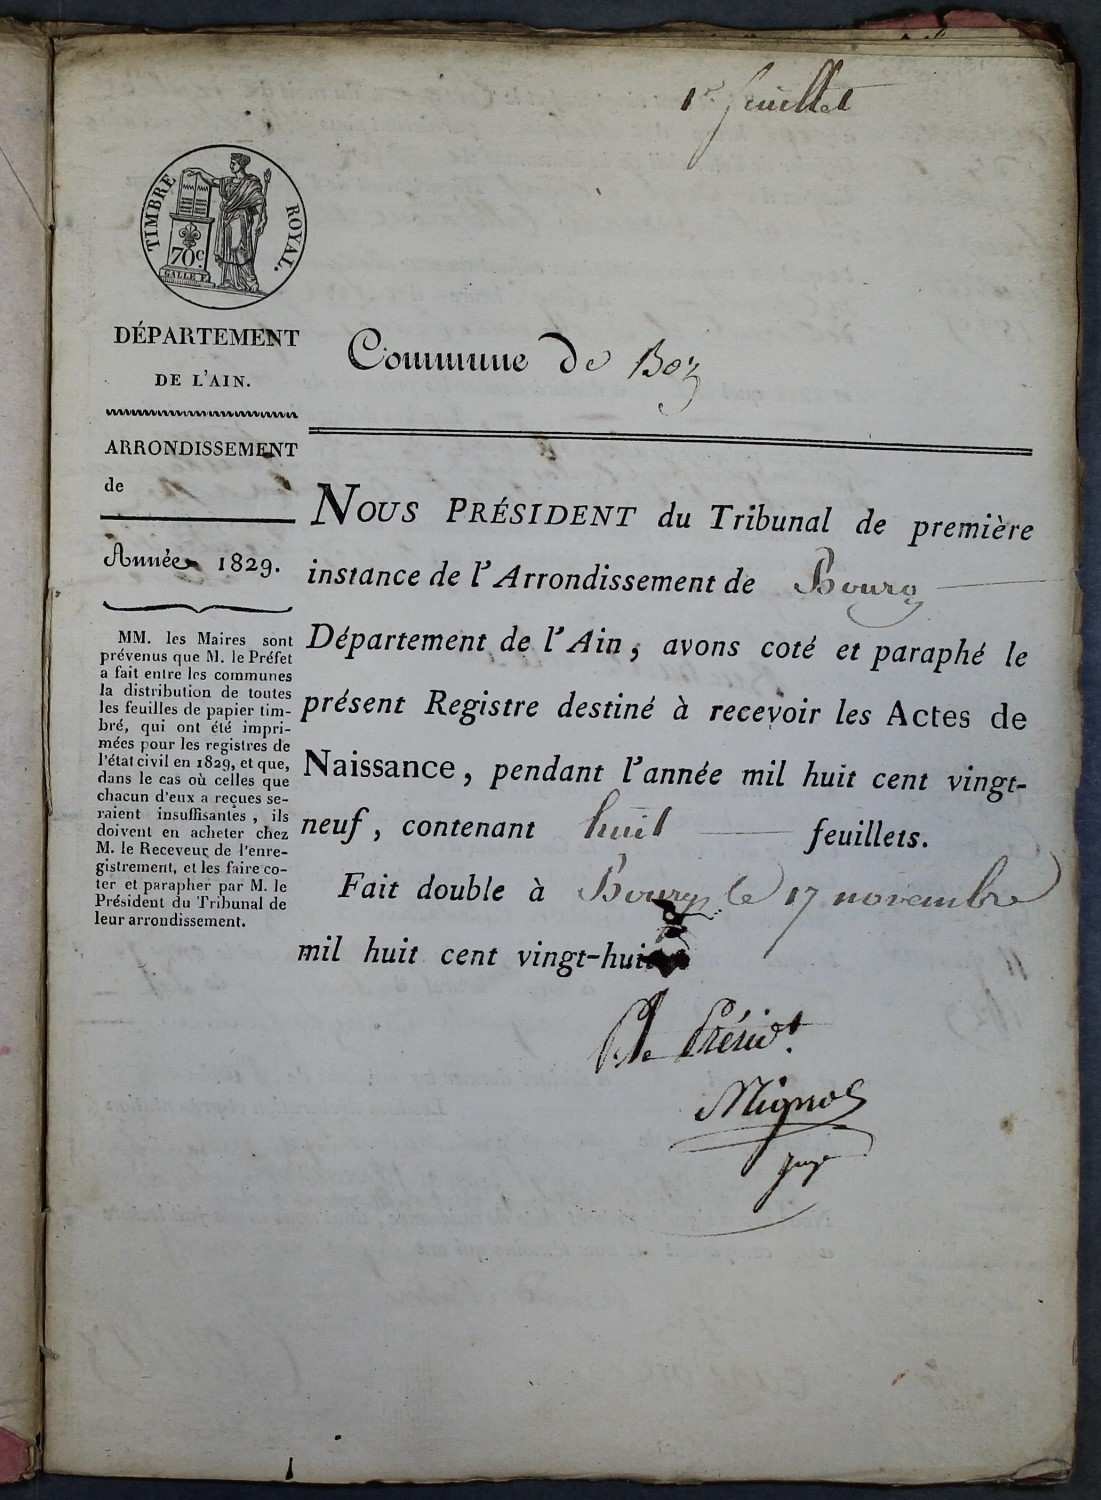 1er feuillet
TIMBRE ROYAL.
70c.
GALLE F.
DÉPARTEMENT
DE L'AIN.
ARRONDISSEMENT
de
Année 1829.
MM. les Maires sont
prévenus que M. le Préfet
a fait entre les communes
la distribution de toutes
les feuilles de papier tim-
bré, qui ont été impri-
mées pour les registres de
l'état civil en 1829, et que,
dans le cas où celles que
chacun d'eux a reçues se-
raient insuffisantes, ils
doivent en acheter chez
M. le Receveur de l'enre-
gistrement, et les faire co-
ter et parapher par M. le
Président du Tribunal de
leur arrondissement.
Commune de Boz
NOUS PRÉSIDENT du Tribunal de première
instance de l'Arrondissement de Bourg
Département de l'Ain, avons coté et paraphé le
présent Registre destiné à recevoir les Actes de
Naissance, pendant l'année mil huit cent vingt-
neuf, contenant huit feuillets.
Fait double à Bourg le 17 novembre
mil huit cent vingt-huit
Le Présidt.
juge